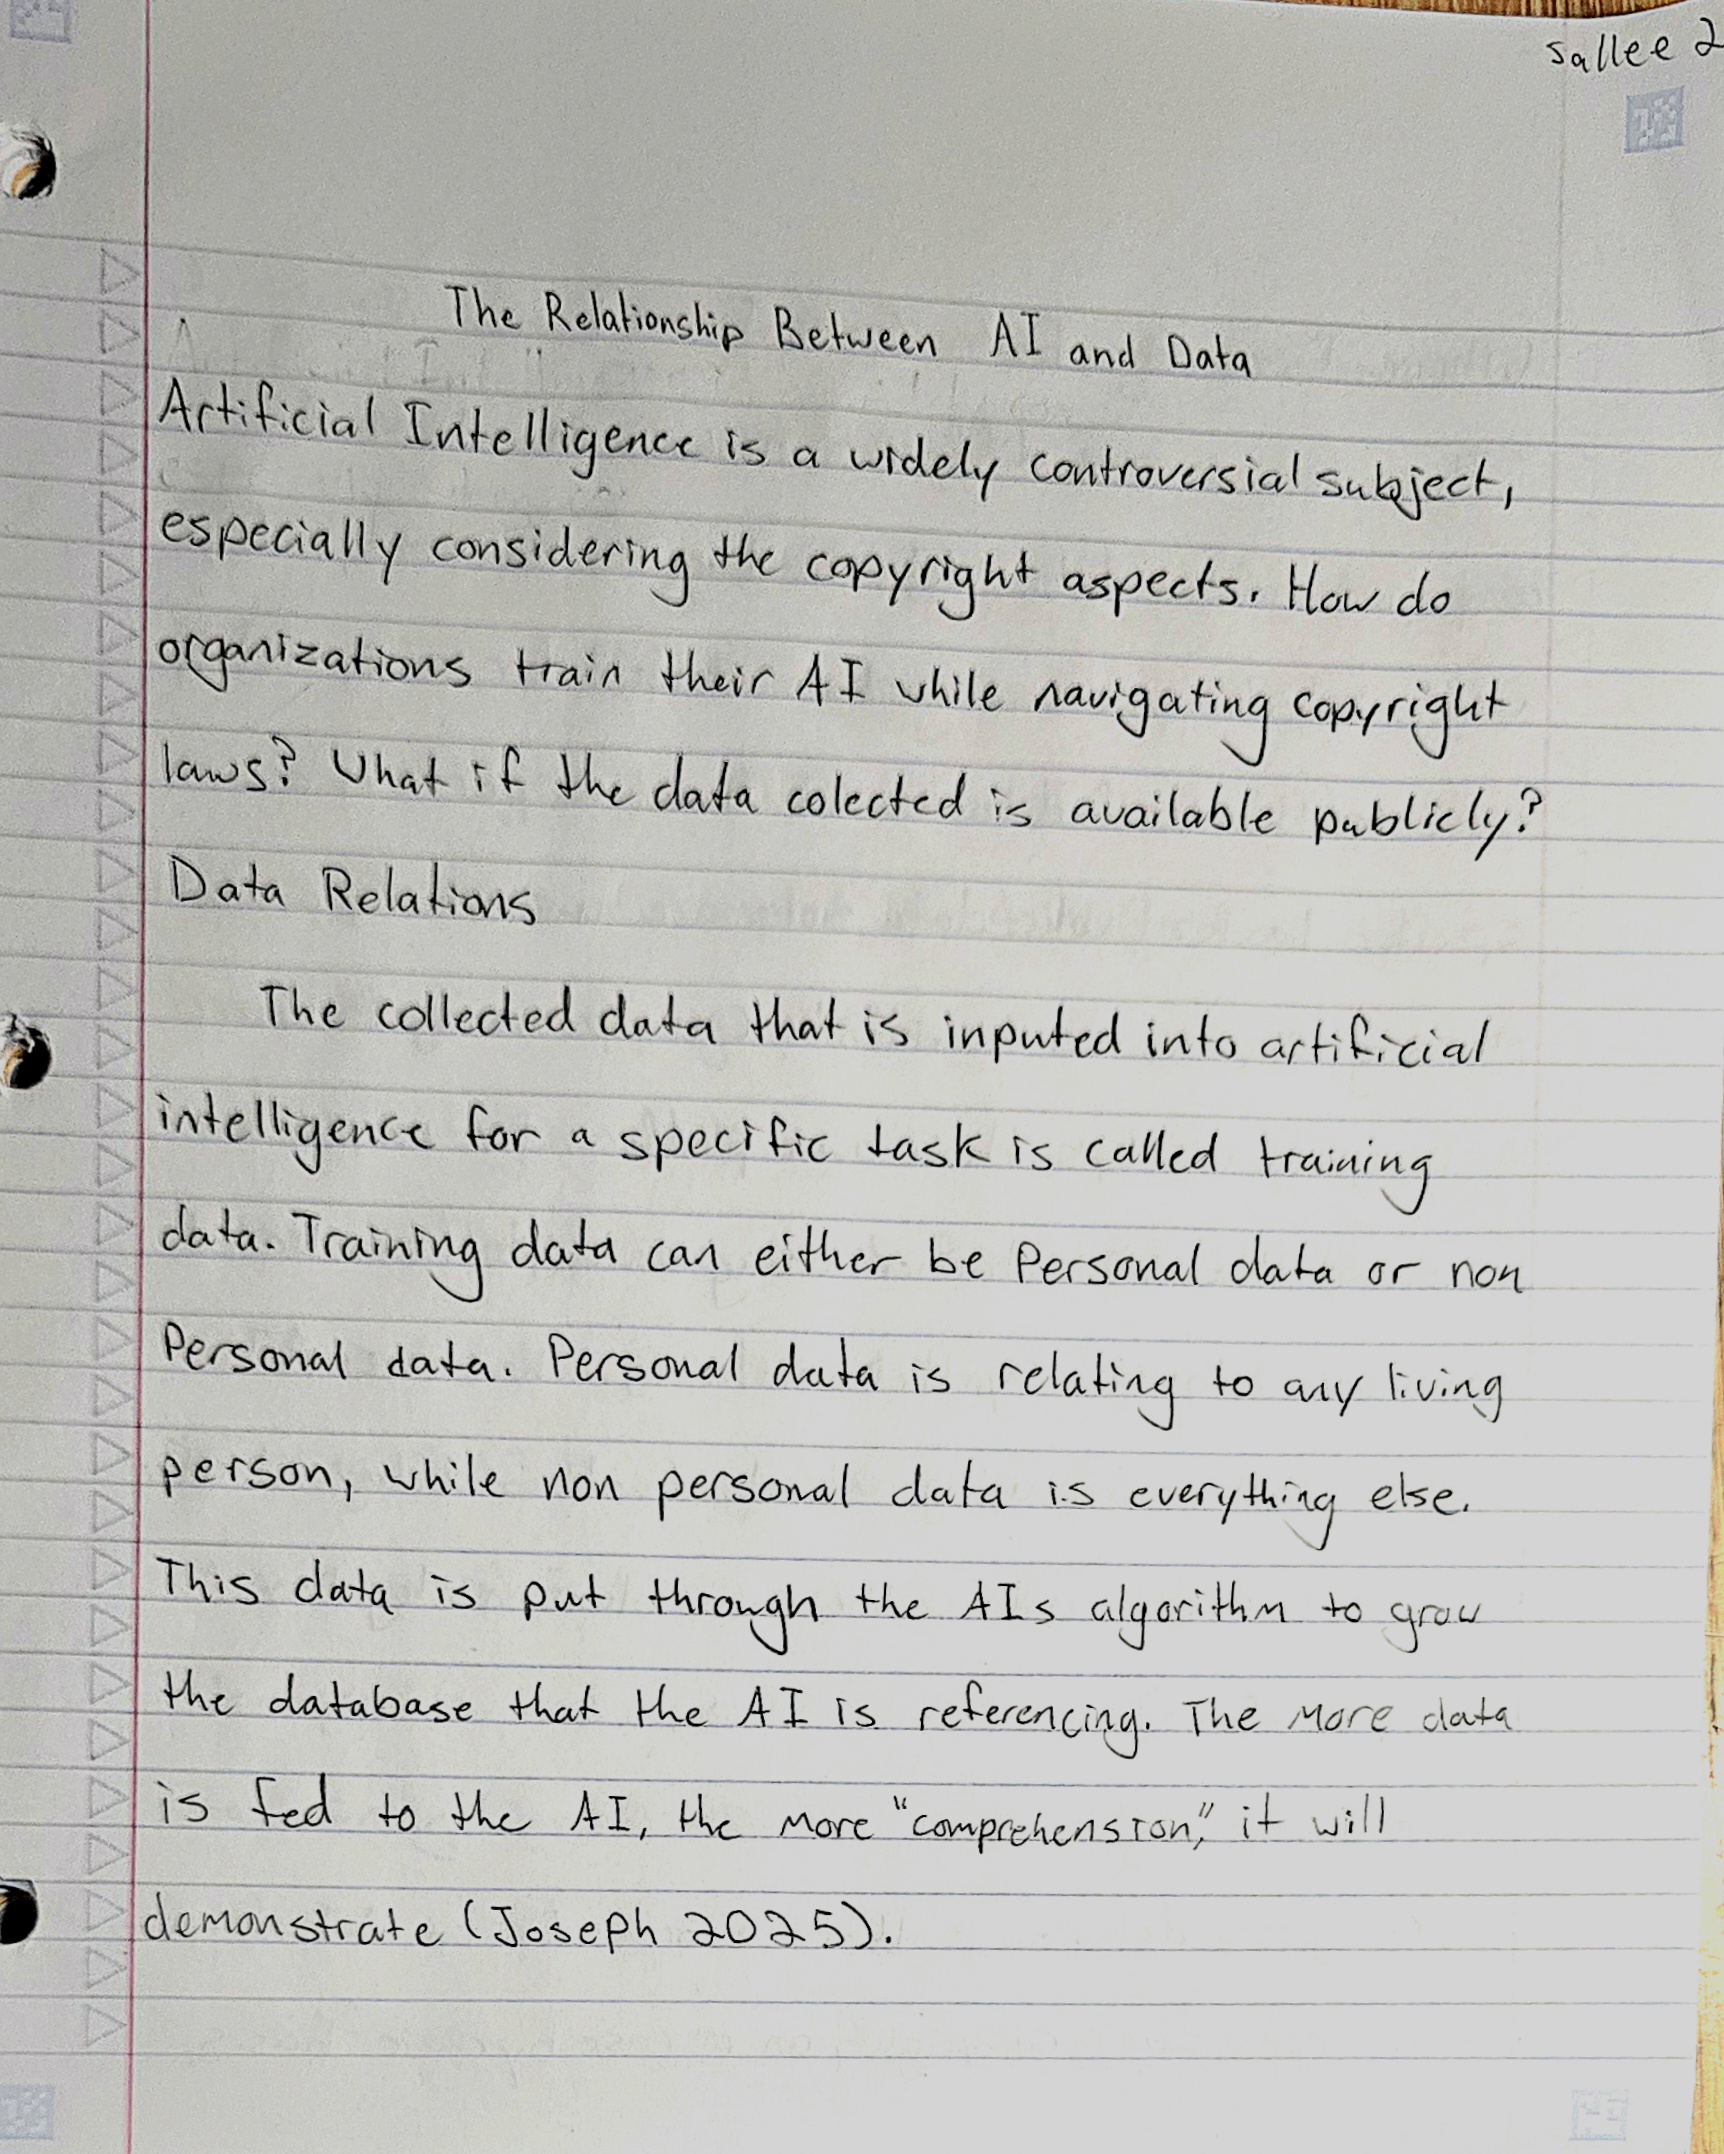 Sallee 2
The Relationship Between AI and Data
Artificial Intelligence is a widely controversial subject,
especially considering the copyright aspects. How do
organizations train their AI while navigating copyright
laws? What if the data colected is available publicly?
Data Relations
The collected data that is inputed into artificial
intelligence for a specific task is called training
data. Training data can either be Personal data or non
Personal data. Personal data is relating to any living
person, while non personal data is everything else.
This data is put through the AIs algorithm to grow
the database that the AI is referencing. The more data
is fed to the AI, the more "comprehension," it will
demonstrate (Joseph 2025).